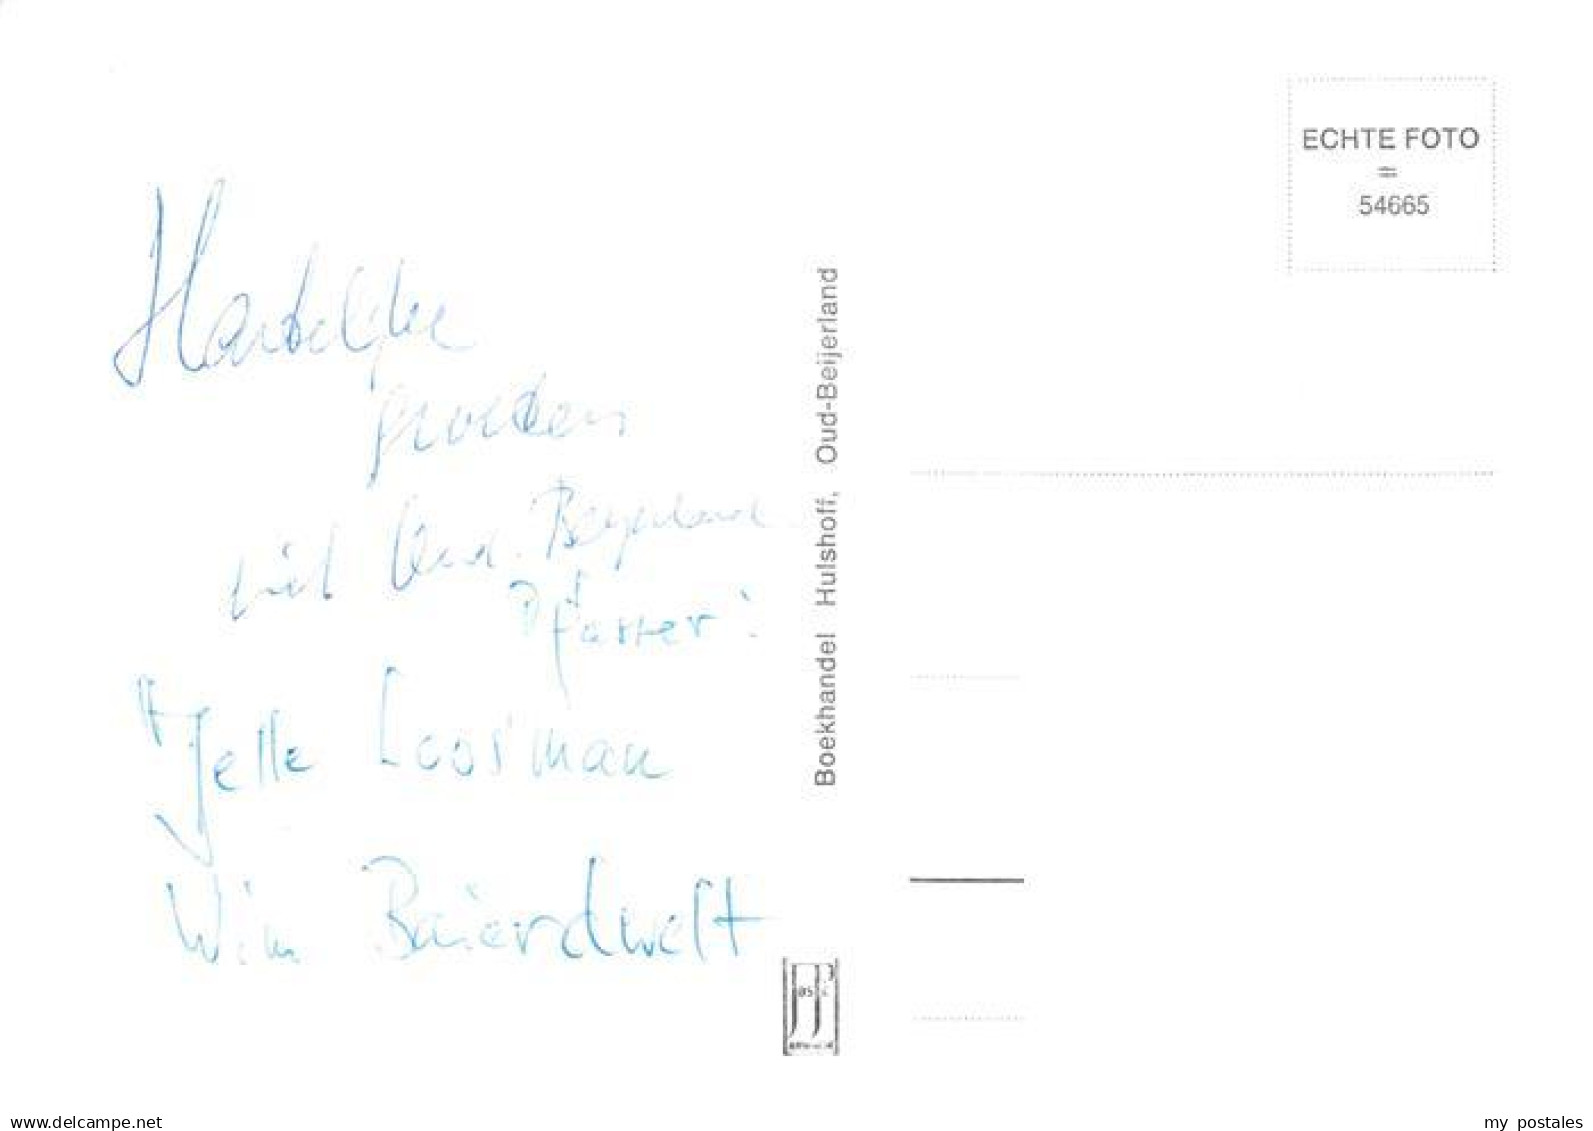 Hartelijke
groeten
uit Oud-Beijerland
Pfarrer:
Jelle Loosman
Wim
Boekhandel Hulshoff, Oud-Beijerland
ECHTE FOTO
54665
www.delcampe.net
my_postales